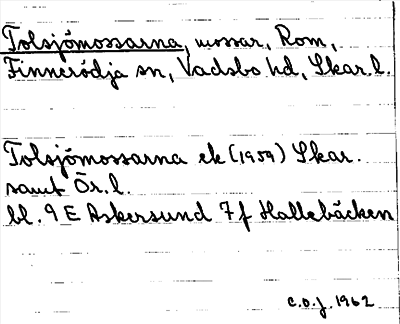 Tolsjömossarna, mossar, Rom,
Finnerödja sn, Vadsbo hd, Skar. l.
Tolsjömossarna ek (1959) Skar.
samt Ör. l.
bl. 9 E Askersund 7 f Hallebäcken
C.O.J. 1962